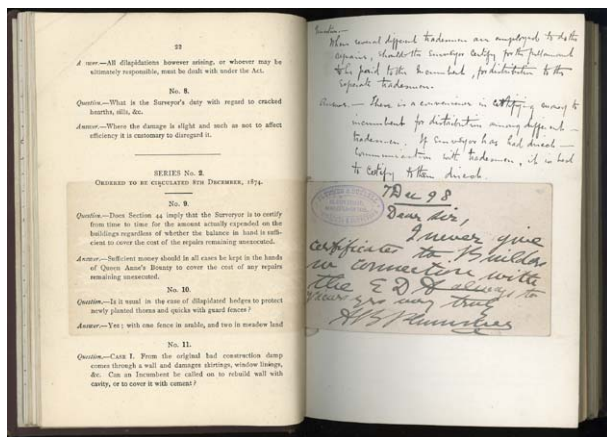 22
Answer.—All dilapidations however arising, or whoever may be
ultimately responsible, must be dealt with under the Act.
No. 8.
Question.—What is the Surveyor's duty with regard to cracked
hearths, sills, &c.
Answer.—Where the damage is slight and such as not to affect
efficiency it is customary to disregard it.
SERIES No. 2.
ORDERED TO BE CIRCULATED 8TH DECEMBER, 1874.
No. 9.
Question.—Does Section 44 imply that the Surveryor is to certify
from time to time for the amount actually expended on the
buildings regardless of whether the balance in hand is suffi-
cient to cover the cost of the repairs remaining unexecuted.
Answer.—Sufficient money should in all cases be kept in the hands
of Queen Anne's Bounty to cover the cost of any repairs
remaining unexecuted.
No. 10.
Question.—Is it usual in the case of dilapidated hedges to protect
newly planted thorns and quicks with guard fences?
Answer.—Yes; with one fence in arable, and two in meadow land
No. 11.
Question.—CASE I. From the original bad construction damp
comes through a wall and damages skirtings, window linings,
&c. Can an Incumbent be called on to rebuild wall with
cavity, or to cover it with cement?
Question—
When several different tradesmen are employed to do the
repairs, should the Surveyor certify for the full amount
to be paid to the Incumbent, for distribution to the
separate tradesmen.
Answer.— There is a convenience in certifying money to
incumbent for distribution among different
tradesmen. If Surveyor has had direct
communication with tradesmen, it is best
to certify to them direct.
7 Dec 98
Dear Sir,
I never give
certificates to Builders
in connection with
the E D A always to
yrs very truly